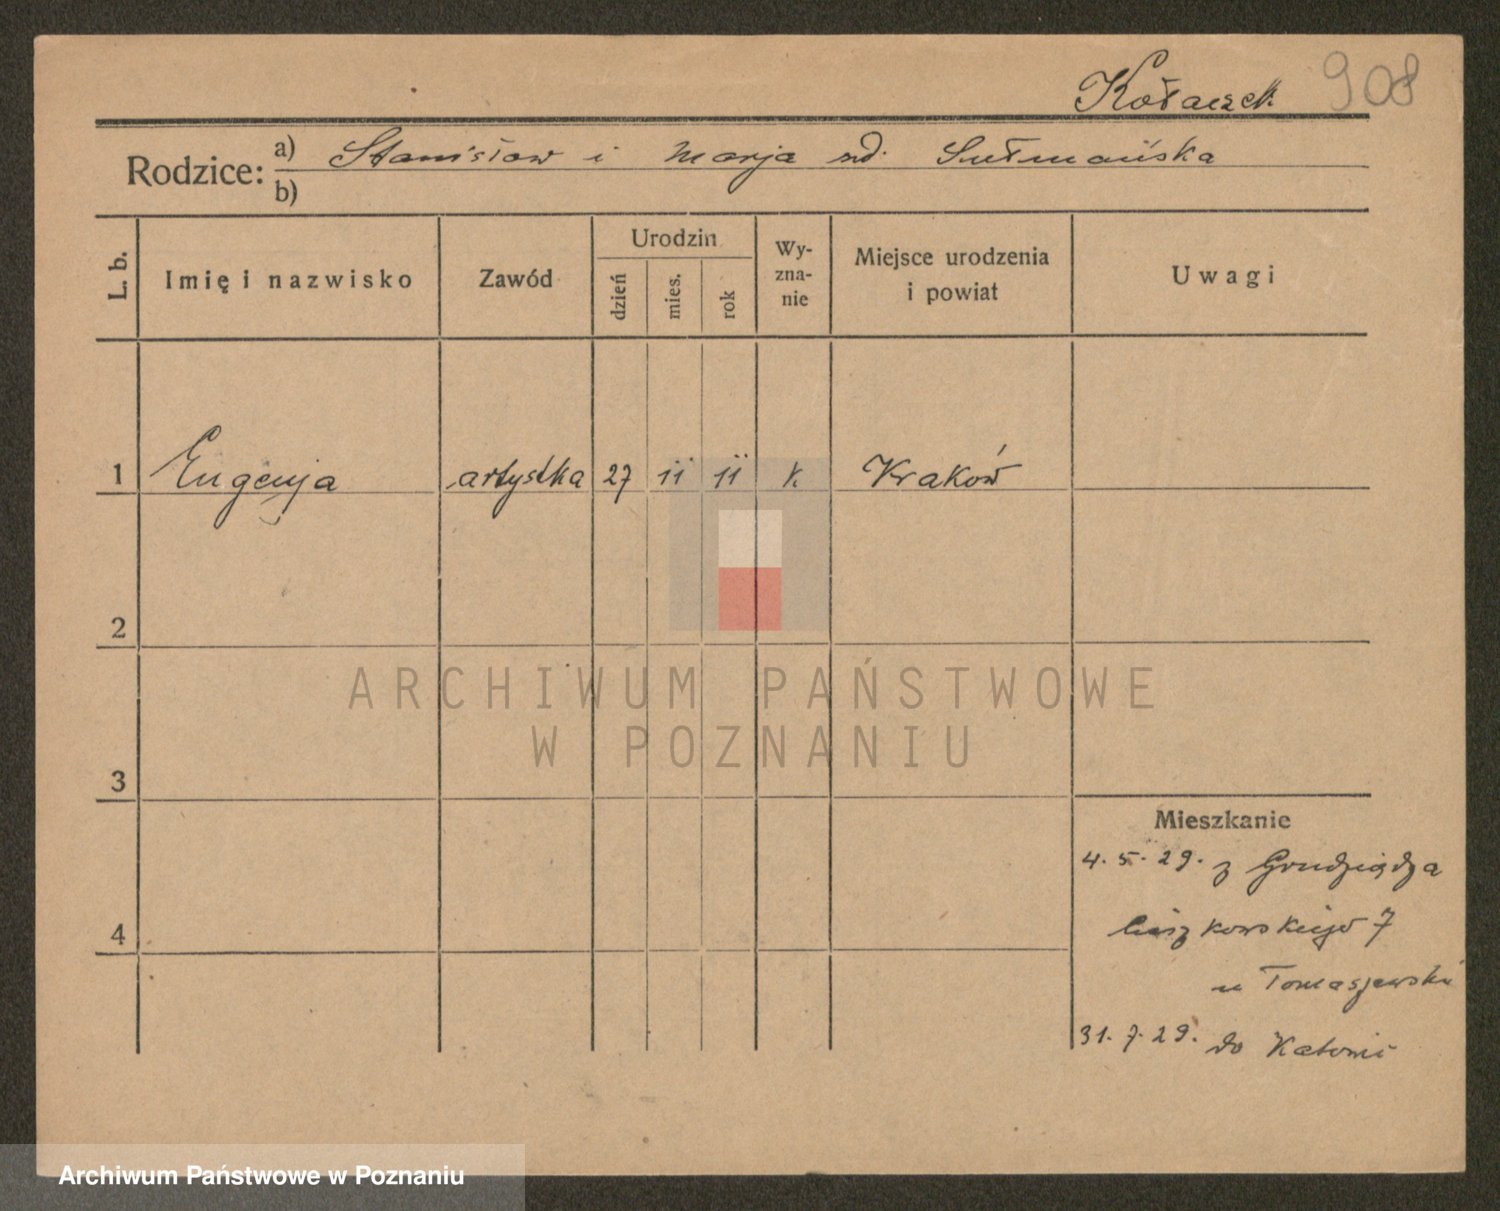 Kołaczek 908
Rodzice: a) Stanisław i Marja
b)
L. b. Imię i nazwisko Zawód Urodzin dzień mies. rok Wy-zna-nie Miejsce urodzenia i powiat Uwagi
1 Eugenja artystka 27 11 11 k. Kraków
2
ARCHIWUM PAŃSTWOWE
W POZNANIU
3
Mieszkanie
4. 5. 29. z Grudziądza
4 7
u Tomaszewski
31. 7. 29. do
Archiwum Państwowe w Poznaniu